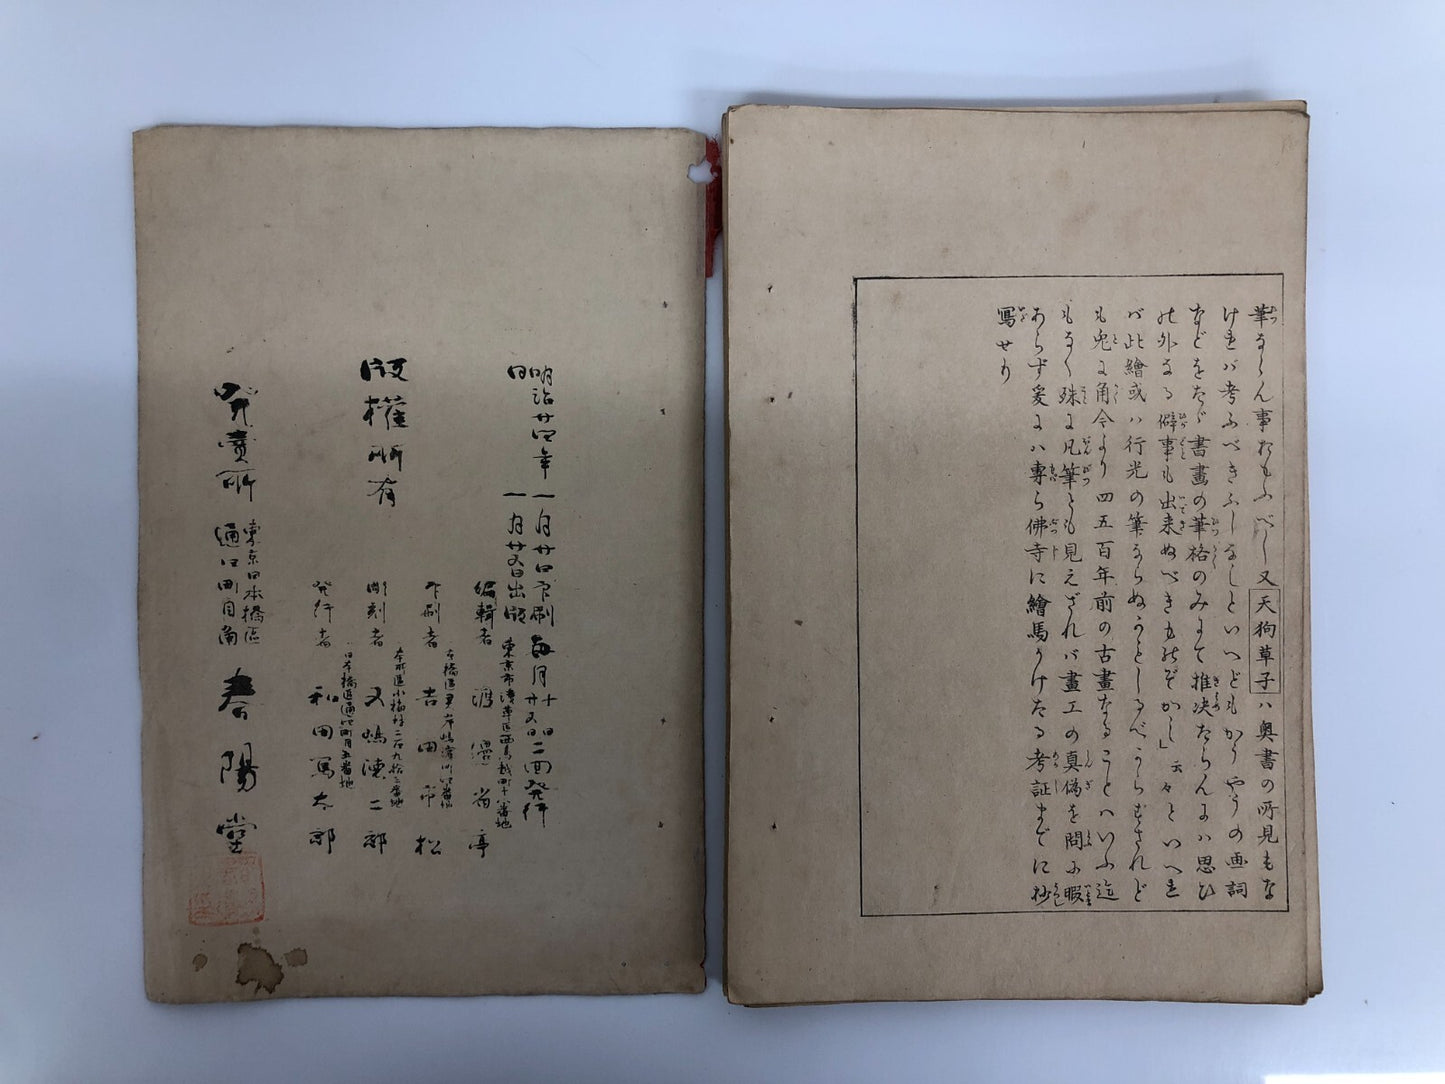 筆ならん事おもふべし又天狗草子ハ奥書の所見もな
けれバ考ふべきふしなしといへどもかうやうの画詞
などをたゞ書畫の筆格のみにて推决たらんにハ思ひ
の外なる僻事も出来ぬべきものぞかし」云々といへれ
バ此繪或ハ行光の筆ならぬうとしるべからずされど
も兎に角今より四五百年前の古畫なることハいふ迄
もなく殊に凡筆とも見えざれバ畫工の真偽を問に暇
あらず爰にハ専ら佛寺に繪馬かけたる考証までに抄
寫せり
明治廿四年一月廿日印刷 毎月十日
同 一月廿五日出版 廿五日二回発行
東京市浅草区西鳥越町十八番地
編輯者 渡邉省亭
印刷者 吉田市松
本所区小梅村二百九拾三番地
彫刻者 五嶋德二郎
日本橋区通四町目五番地
発行者 和田篤太郎
版權所有
東京日本橋区
発賣所 通四町目角 春陽堂